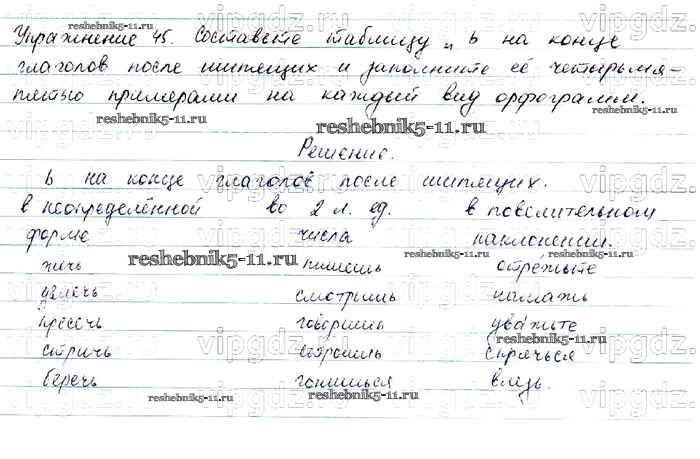 Упражнение 45. Составьте таблицу „ ь на конце
глаголов после шипящих и заполните её четырьмя-
пятью примерами на каждый вид орфограммы.
Решение.
ь на конце глаголов после шипящих.
в неопределённой во 2 л. ед. в повелительном
форме числа наклонении.
жечь пишешь отрежьте
увлечь смотришь намажь
пресечь говоришь уважьте
стричь строишь спрячься
беречь гонишься влезь.
reshebnik5-11.ru
reshebnik5-11.ru
reshebnik5-11.ru
reshebnik5-11.ru
reshebnik5-11.ru
reshebnik5-11.ru
reshebnik5-11.ru
reshebnik5-11.ru